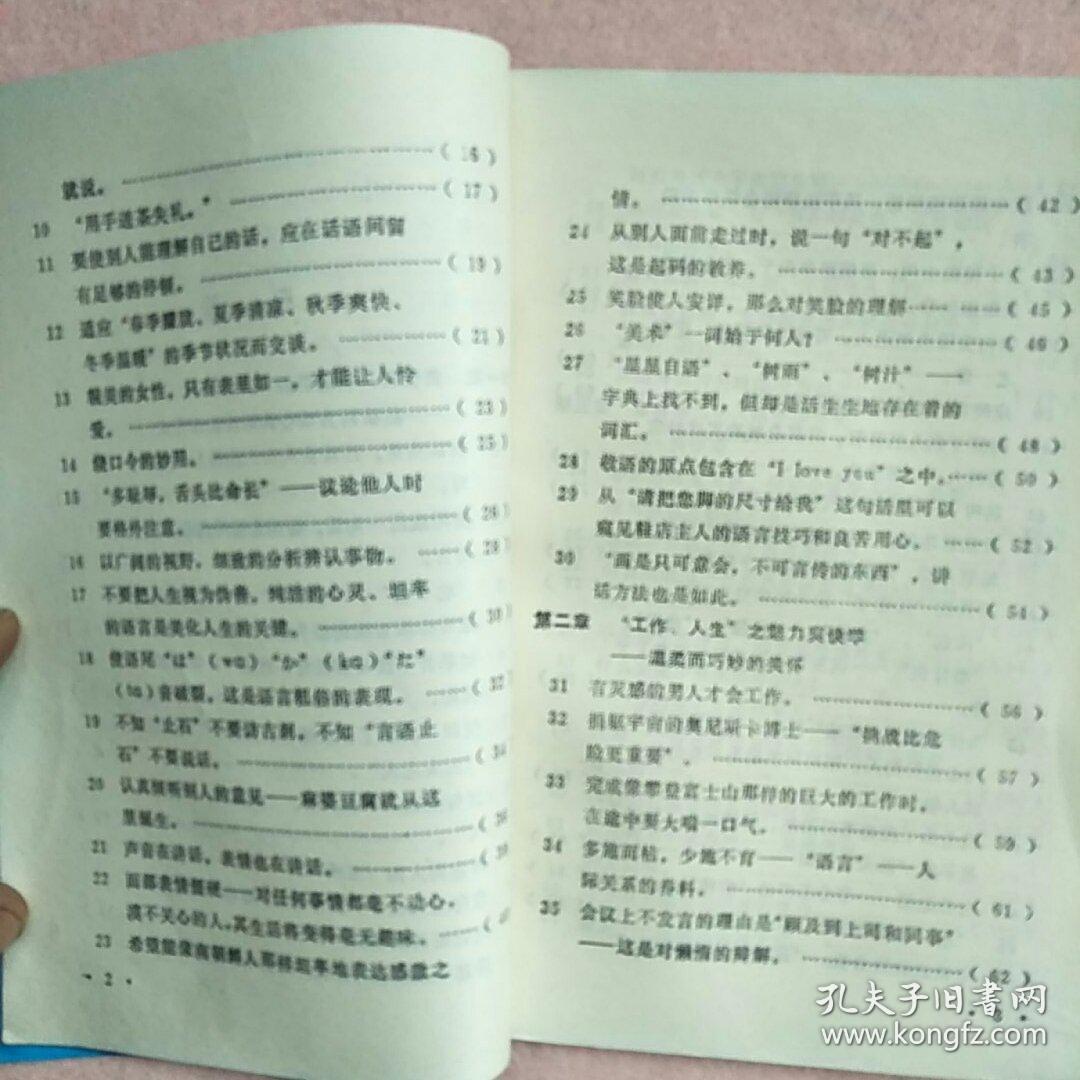 就说。……………………………………( 16 )
10 “用手递茶失礼。” ……………………( 17 )
11 要使别人能理解自己的话，应在话语间留
有足够的停顿。 …………………………( 19 )
12 适应“春季朦胧、夏季清凉、秋季爽快、
冬季温暖”的季节状况而交谈。 …………( 21 )
13 貌美的女性，只有表里如一，才能让人怜
爱。 ………………………………………( 23 )
14 绕口令的妙用。 …………………………( 25 )
15 “多耻辱，舌头比命长”——谈论他人时
要格外注意。 ……………………………( 26 )
16 以广阔的视野，细致的分析辨认事物。 ……( 28 )
17 不要把人生视为伪善，纯洁的心灵、坦率
的语言是美化人生的关键。 ………………( 30 )
18 使语尾“は”（wa）“か”（ka）“た”
（ta）音破裂，这是语言粗俗的表现。 ……( 32 )
19 不知“止石”不要访古刹，不知“言语止
石”不要说话。 …………………………
20 认真倾听别人的意见——麻婆豆腐就从这
里诞生。 …………………………………
21 声音在讲话，表情也在讲话。 ……………
22 面部表情僵硬——对任何事情都毫不动心，
漠不关心的人，其生活将变得毫无趣味。 ……
23 希望能像南朝鲜人那样坦率地表达感激之
· 2 ·
情。 ………………………………………( 42 )
24 从别人面前走过时，说一句“对不起”，
这是起码的教养。 ………………………( 43 )
25 笑脸使人安详，那么对笑脸的理解…… ……( 45 )
26 “美术”一词始于何人？ …………………( 46 )
27 “星星自语”、“树雨”、“树汁”——
字典上找不到，但却是活生生地存在着的
词汇。 ……………………………………( 48 )
28 敬语的原点包含在“I love you”之中。……( 50 )
29 从“请把您脚的尺寸给我”这句话里可以
窥见鞋店主人的语言技巧和良苦用心。 ……( 52 )
30 “画是只可意会，不可言传的东西”，讲
话方法也是如此。 ………………………( 54 )
第二章 “工作、人生”之魅力与诀学
——温柔而巧妙的关怀
31 有灵感的男人才会工作。 …………………( 56 )
32 捐躯宇宙的奥尼斯卡博士——“挑战比危
险更重要”。 ……………………………( 57 )
33 完成像攀登富士山那样的巨大的工作时，
在途中要大喘一口气。 …………………( 59 )
34 多施而枯，少施不育——“语言”——人
际关系的养料。 …………………………( 61 )
35 会议上不发言的理由是“顾及到上司和同事”
——这是对懒惰的辩解。 ………………( 62 )
· 3 ·
孔夫子旧书网
www.kongfz.com